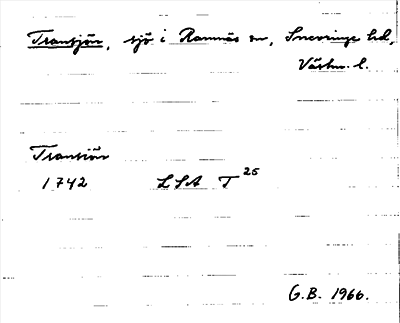 Transjön, sjö i Ramnäs sn, Snevringe hd,
Västm. l.
Transiön
1742 LSA T 25
G.B. 1966.